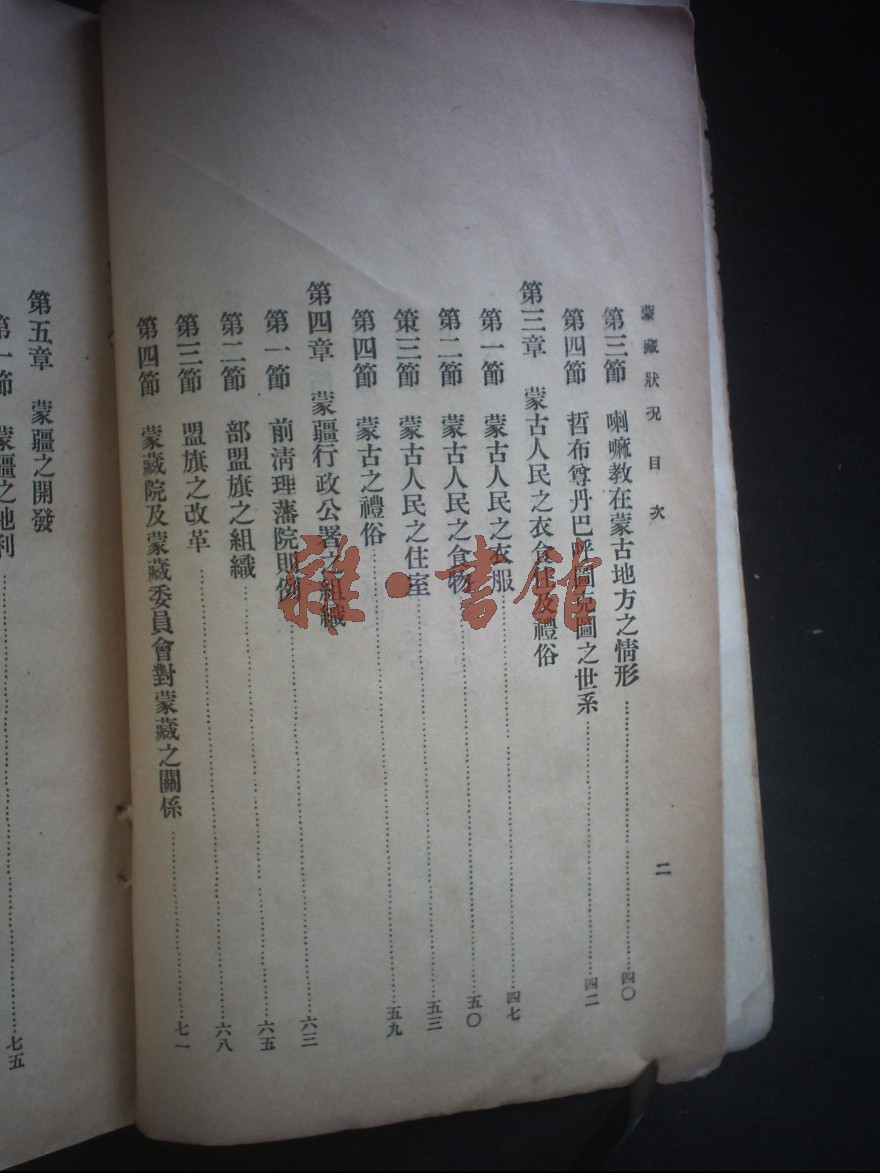 蒙藏狀況 目次 二
第三節 喇嘛教在蒙古地方之情形 四〇
第四節 哲布尊丹巴呼圖克圖之世系 四二
第三章 蒙古人民之衣食住及禮俗
第一節 蒙古人民之衣服 四七
第二節 蒙古人民之食物 五〇
策三節 蒙古人民之住室 五三
第四節 蒙古之禮俗 五九
第四章 蒙疆行政公署之組織
第一節 前清理藩院則例 六三
第二節 部盟旗之組織 六五
第三節 盟旗之改革 六八
第四節 蒙藏院及蒙藏委員會對蒙藏之關係 七一
第五章 蒙疆之開發
第一節 蒙疆之地利 七五
雜·書館